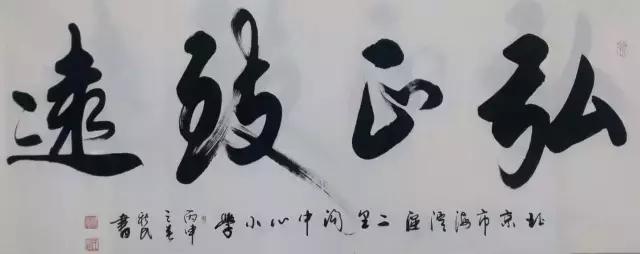 弘正致遠
北京市海淀區二里溝中心小學
丙申
之春
新民
書